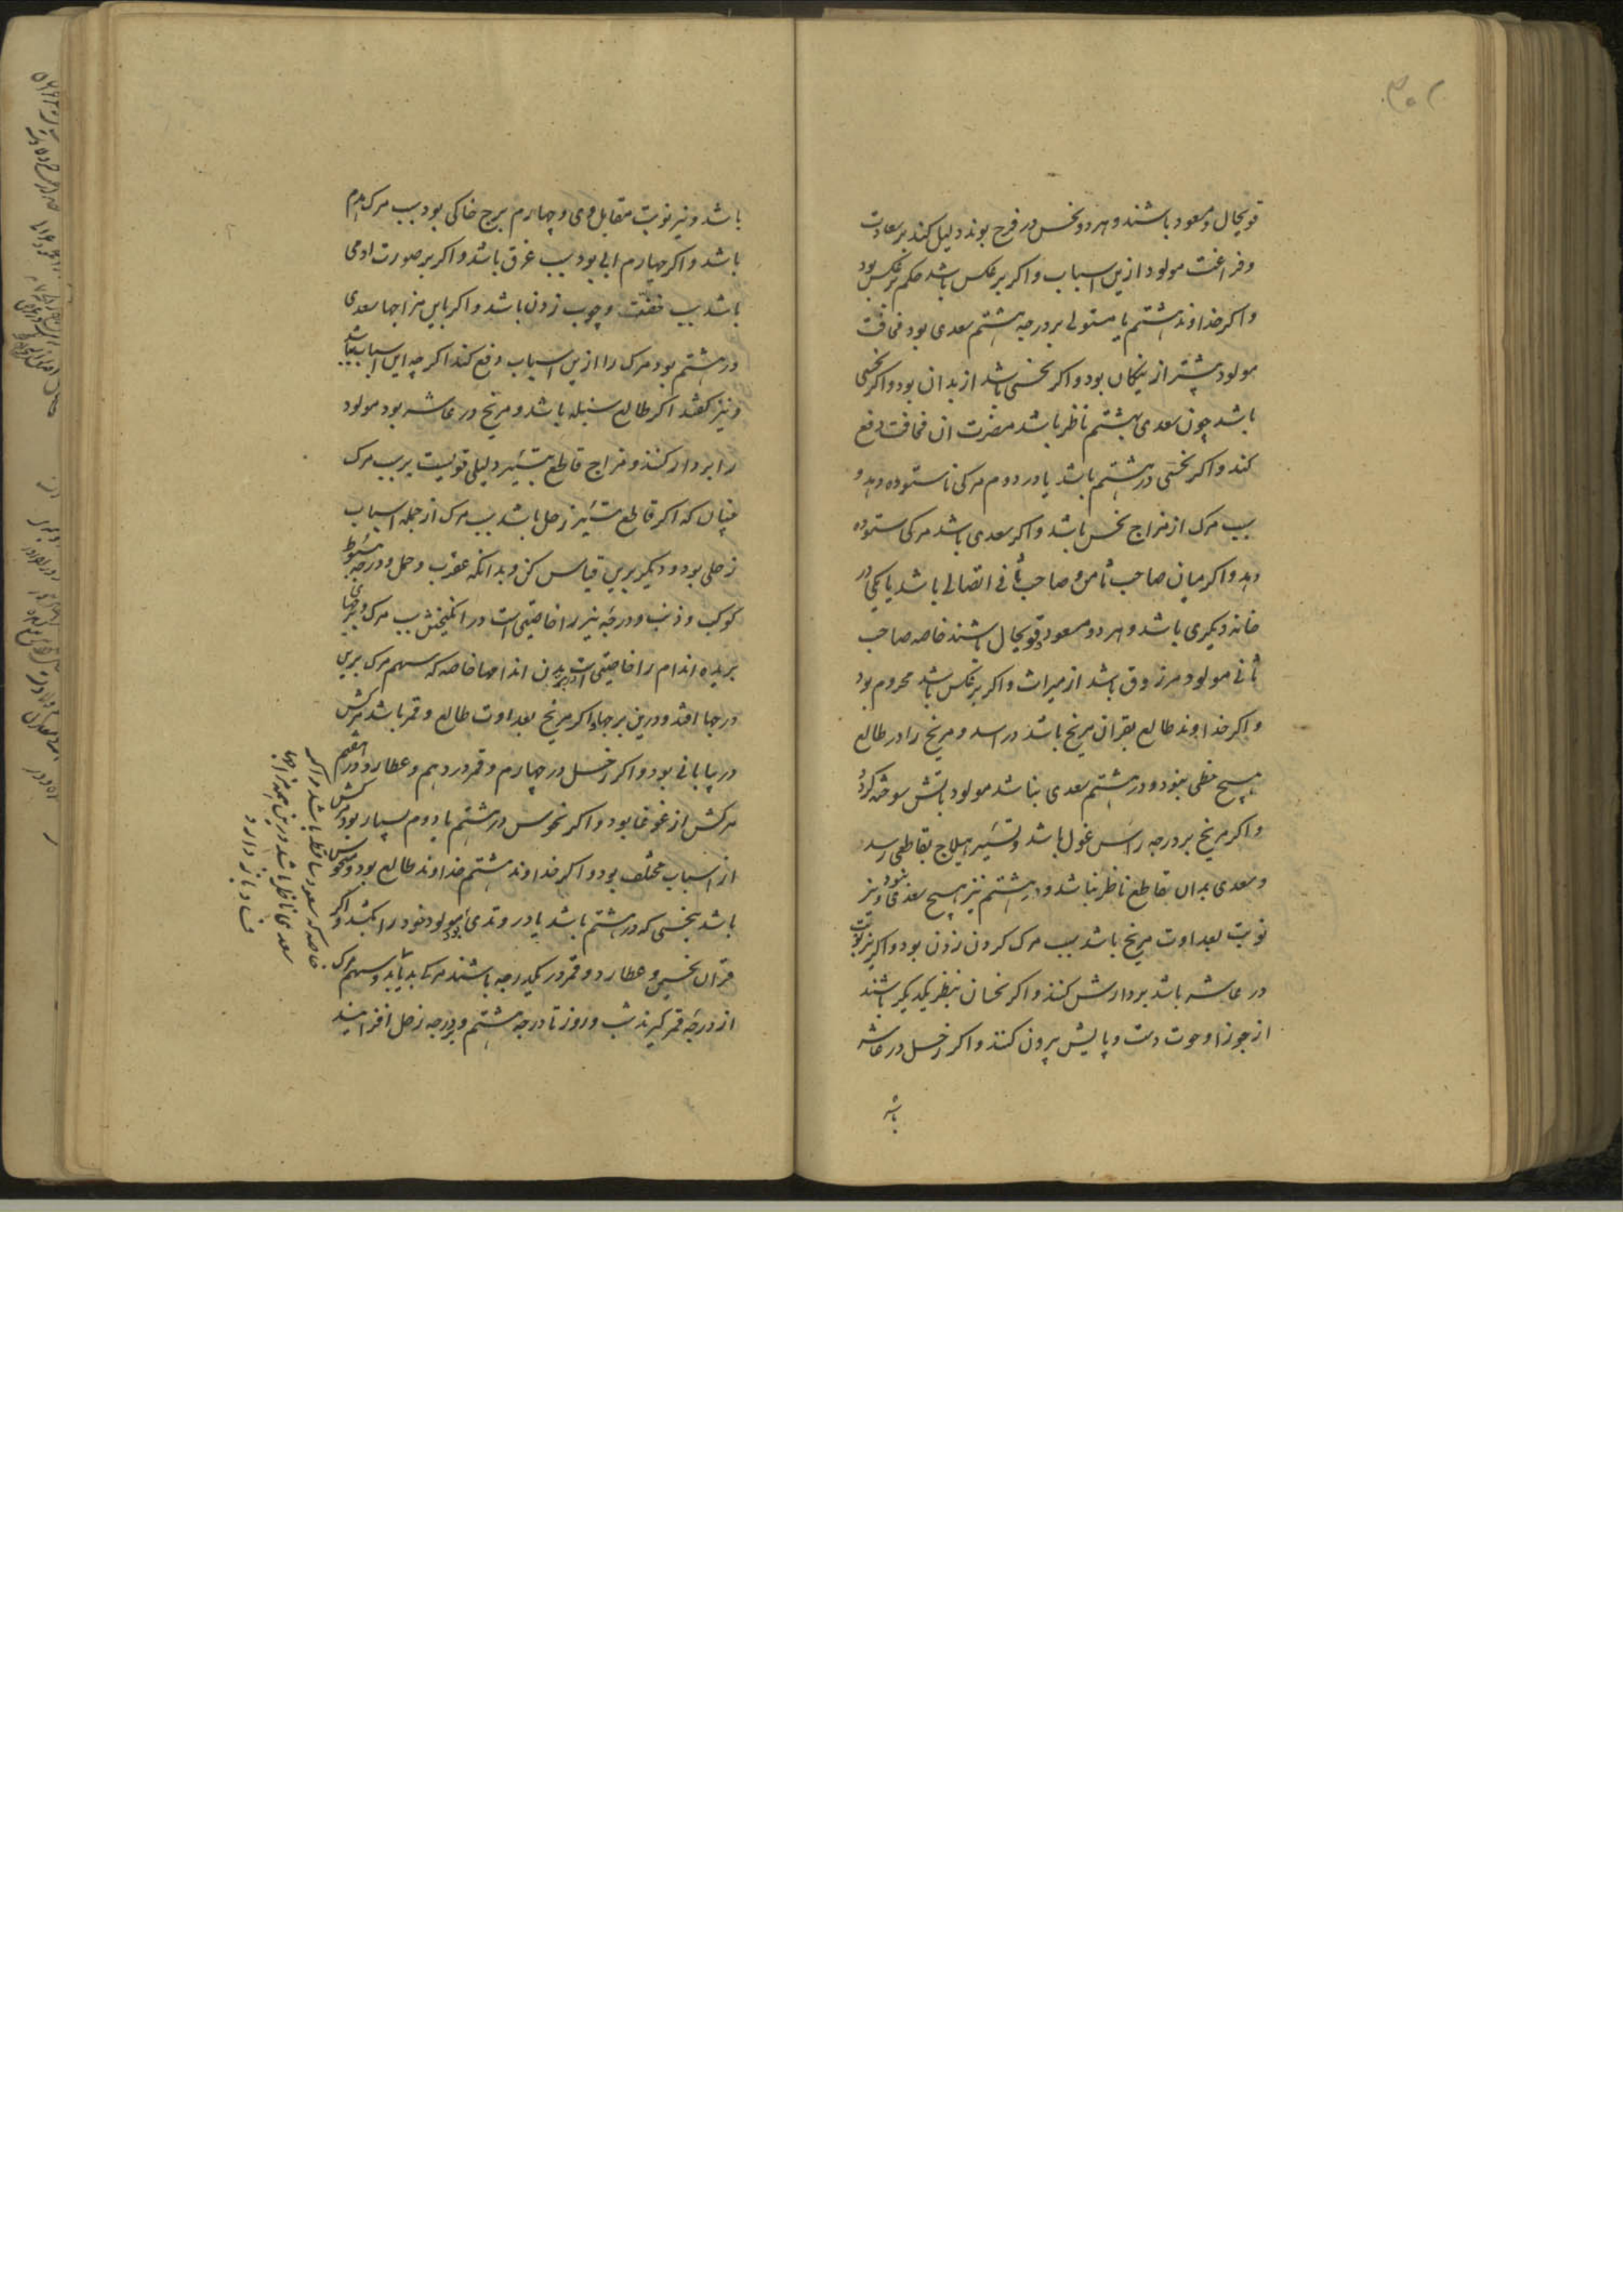 قویحال و مسعود باشند و هر دو نحس در فرح بوند دلیل کند بر سعادت
و فراغت مولود ازین اسباب و اکر بر عکس باشد حکم بر عکس بود
و اکر خداوند هشتم یا مستولی بر درجه هشتم سعدی بود مخافت
مولود بیشتر از نیکان بود و اکر نحسی باشد از بدان بود و اکر نحسی
باشد چون سعدی بهشتم ناظر باشد مضرت ان مخافت دفع
کند و اکر نحسی در هشتم باشد یا در دوم مرکی ناستوده دهد و
سبب مرک از مزاج نحس باشد و اکر سعدی باشد مرکی ستوده
دهد و اکر میان صاحب ثامن و صاحب ثانی اتصالی باشد یا یکی در
خانه دیکری باشد و هر دو مسعود و قویحال باشند خاصه صاحب
ثانی مولود مرزوق باشد از میراث و اکر بر عکس باشد محروم بود
و اکر خداوند طالع بقران مریخ باشد در اسد و مریخ را در طالع
هیچ حظی نبود و در هشتم سعدی نباشد مولود باتش سوخته کردد
و اکر مریخ بر درجه راس غول باشد و تسییر هیلاج بقاطعی رسد
و سعدی بدان قاطع ناظر نباشد و در هشتم نیز هیچ سعدی نبود و نیز
نوبت بعداوت مریخ باشد سبب مرک کردن زدن بود و اکر نیر نوبت
در عاشر باشد بردارش کنند و اکر نحسان بنظر یکدیکر باشند
از جوزا و حوت دست و پایش بیرون کنند و اکر زحل در عاشر
باشد
باشد و نیر نوبت مقابل وی و چهارم برج خاکی بود سبب مرک هدم
باشد و اکر چهارم ابی بود سبب غرق باشد و اکر بر صورت ادمی
باشد سبب خفقت و چوب زدن باشد و اکر با این مزاجها سعدی
در هشتم بود مرک را ازین اسباب دفع کند اکر چه این اسباب باشد
و نیز کفتند اکر طالع سنبله باشد و مریخ در عاشر بود مولود
را بردار کنند و مزاج قاطع تسییر دلیلی قویست بر سبب مرک
چنان که اکر قاطع تسییر زحل باشد سبب مرک از جمله اسباب
زحلی بود و دیکر برین قیاس کن و بدانکه عقرب و حمل و درجه هبوط
کوکب و ذنب و درجه نیر را خاصیتی است در انکیختن سبب مرک و برجهای
بریده اندام را خاصیتی است در بریدن اندامها خاصه که سهم مرک برین
درجها افتد و درین برجها و اکر مریخ بعداوت طالع و قمر باشد مرکش
در بیابانی بود و اکر زحل در چهارم و قمر در دهم و عطارد در هفتم
مرکش از غوغا بود و اکر نحوس در هشتم یا دوم بسیار بود مرکش
از اسباب مختلف بود و اکر خداوند هشتم خداوند طالع بود و منحوس
باشد بنحسی که در هشتم باشد یا در وتدی بود مولود خود را بکشد و اکر
قران نحسین و عطارد و قمر در یکدرجه باشند مرکی بد یابد و سهم مرک
از درجه قمر کیرند شب و روز تا درجه هشتم و بدرجه زحل افزایند
خاصه که سعود ساقط باشد و اکر
سعدی ناظر باشد درین همه مزاجها
فساد باز دارد